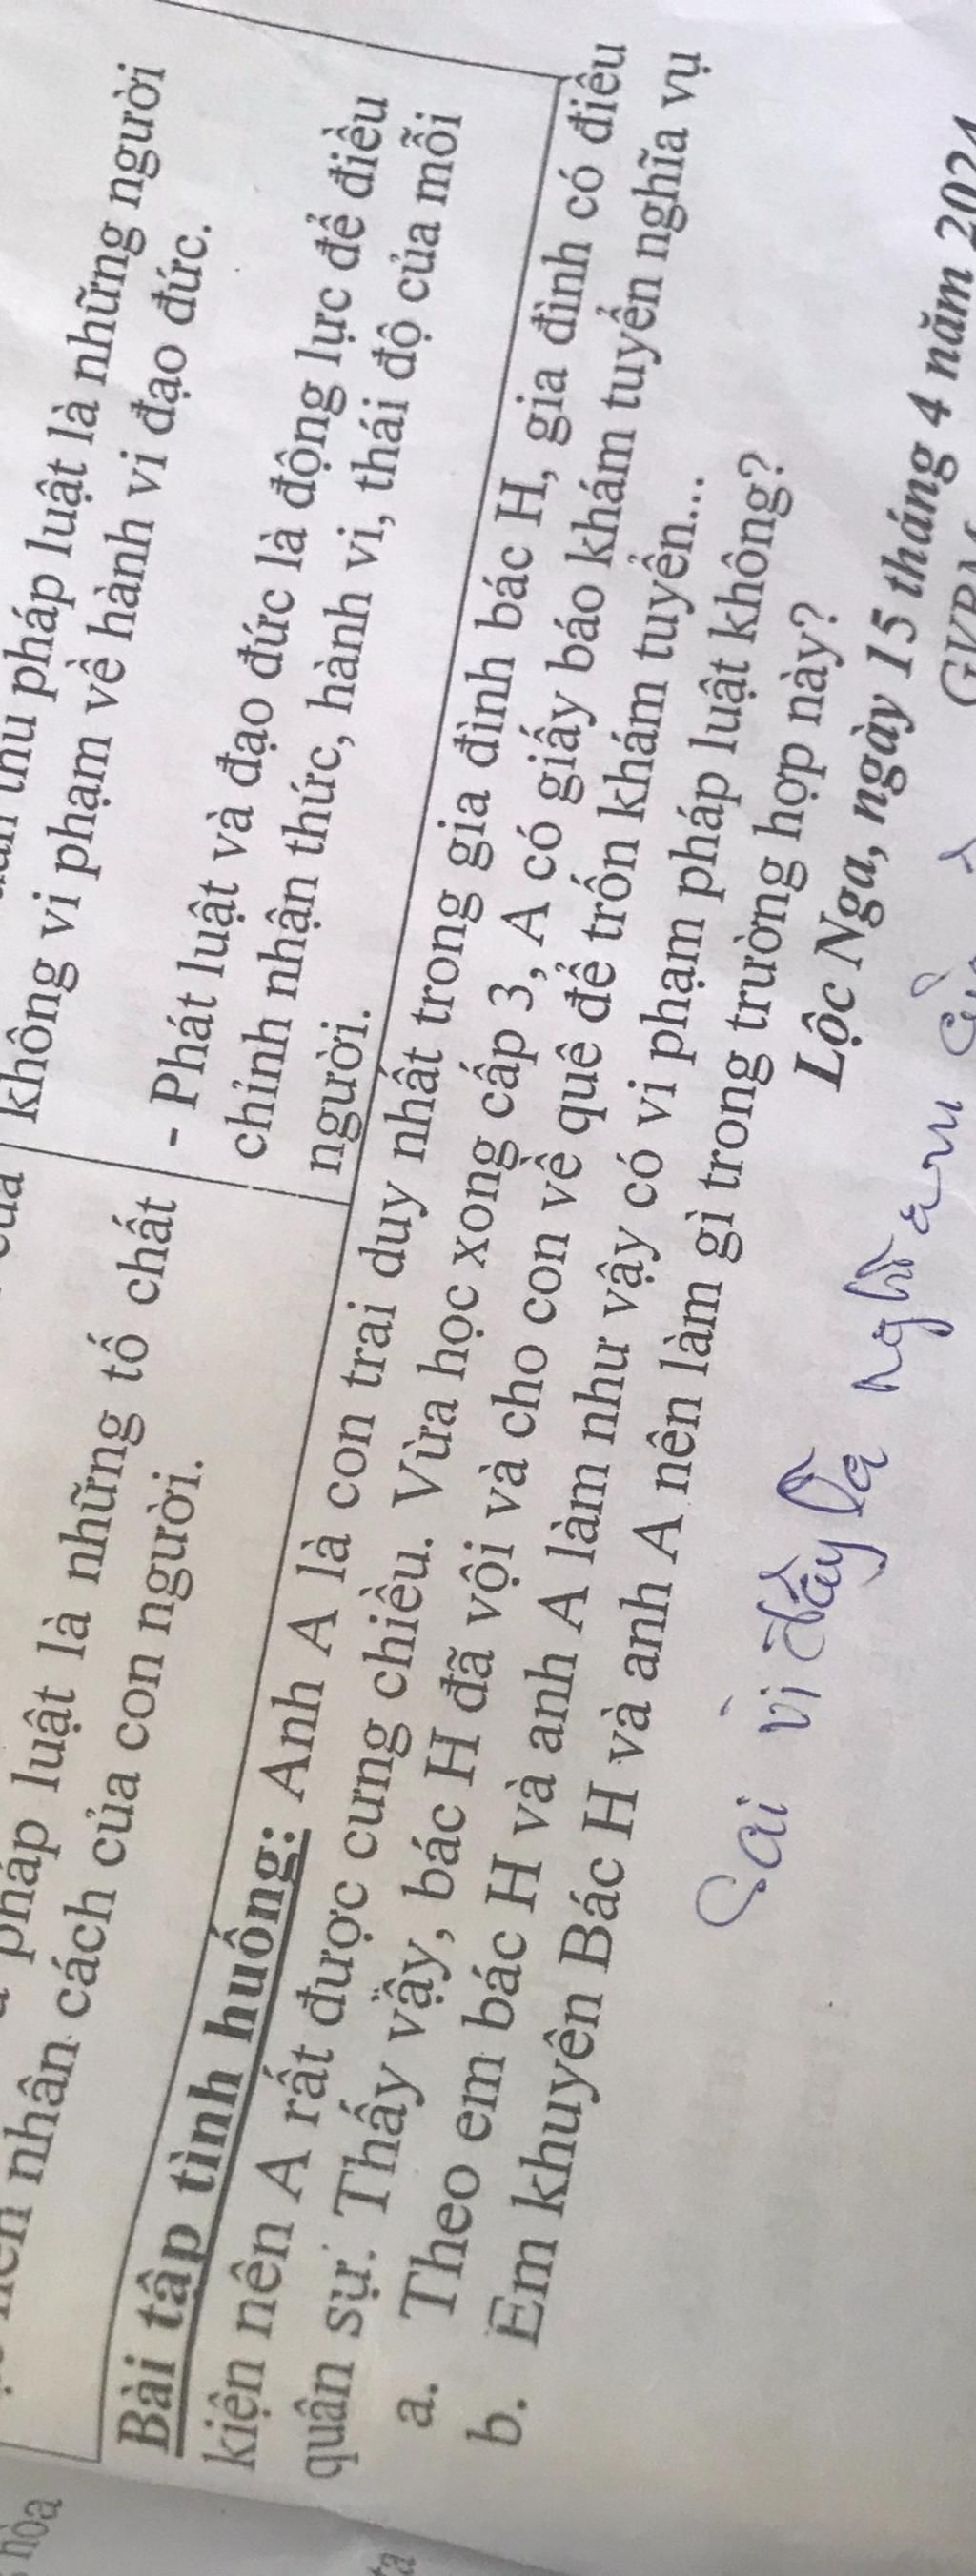 pháp luật là những tố chất
nhân cách của con người.
pháp luật là những người
không vi phạm về hành vi đạo đức.
- Phát luật và đạo đức là động lực để điều
chỉnh nhận thức, hành vi, thái độ của mỗi
người.
Bài tập tình huống: Anh A là con trai duy nhất trong gia đình bác H, gia đình có điều
kiện nên A rất được cưng chiều. Vừa học xong cấp 3, A có giấy báo khám tuyển nghĩa vụ
quân sự. Thấy vậy, bác H đã vội và cho con về quê để trốn khám tuyển...
a. Theo em bác H và anh A làm như vậy có vi phạm pháp luật không?
b. Em khuyên Bác H và anh A nên làm gì trong trường hợp này?
Lộc Nga, ngày 15 tháng 4 năm 2024
Sai vì đây là